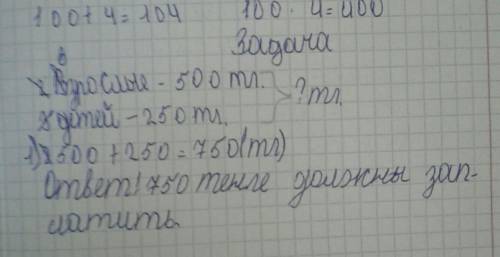 100+4=104 100·4=400
Задача
Взрослые - 500 тг.
?тг.
детей - 250 тг.
1) 500+250=750(тг)
Ответ: 750 тенге должны зап-
латить.